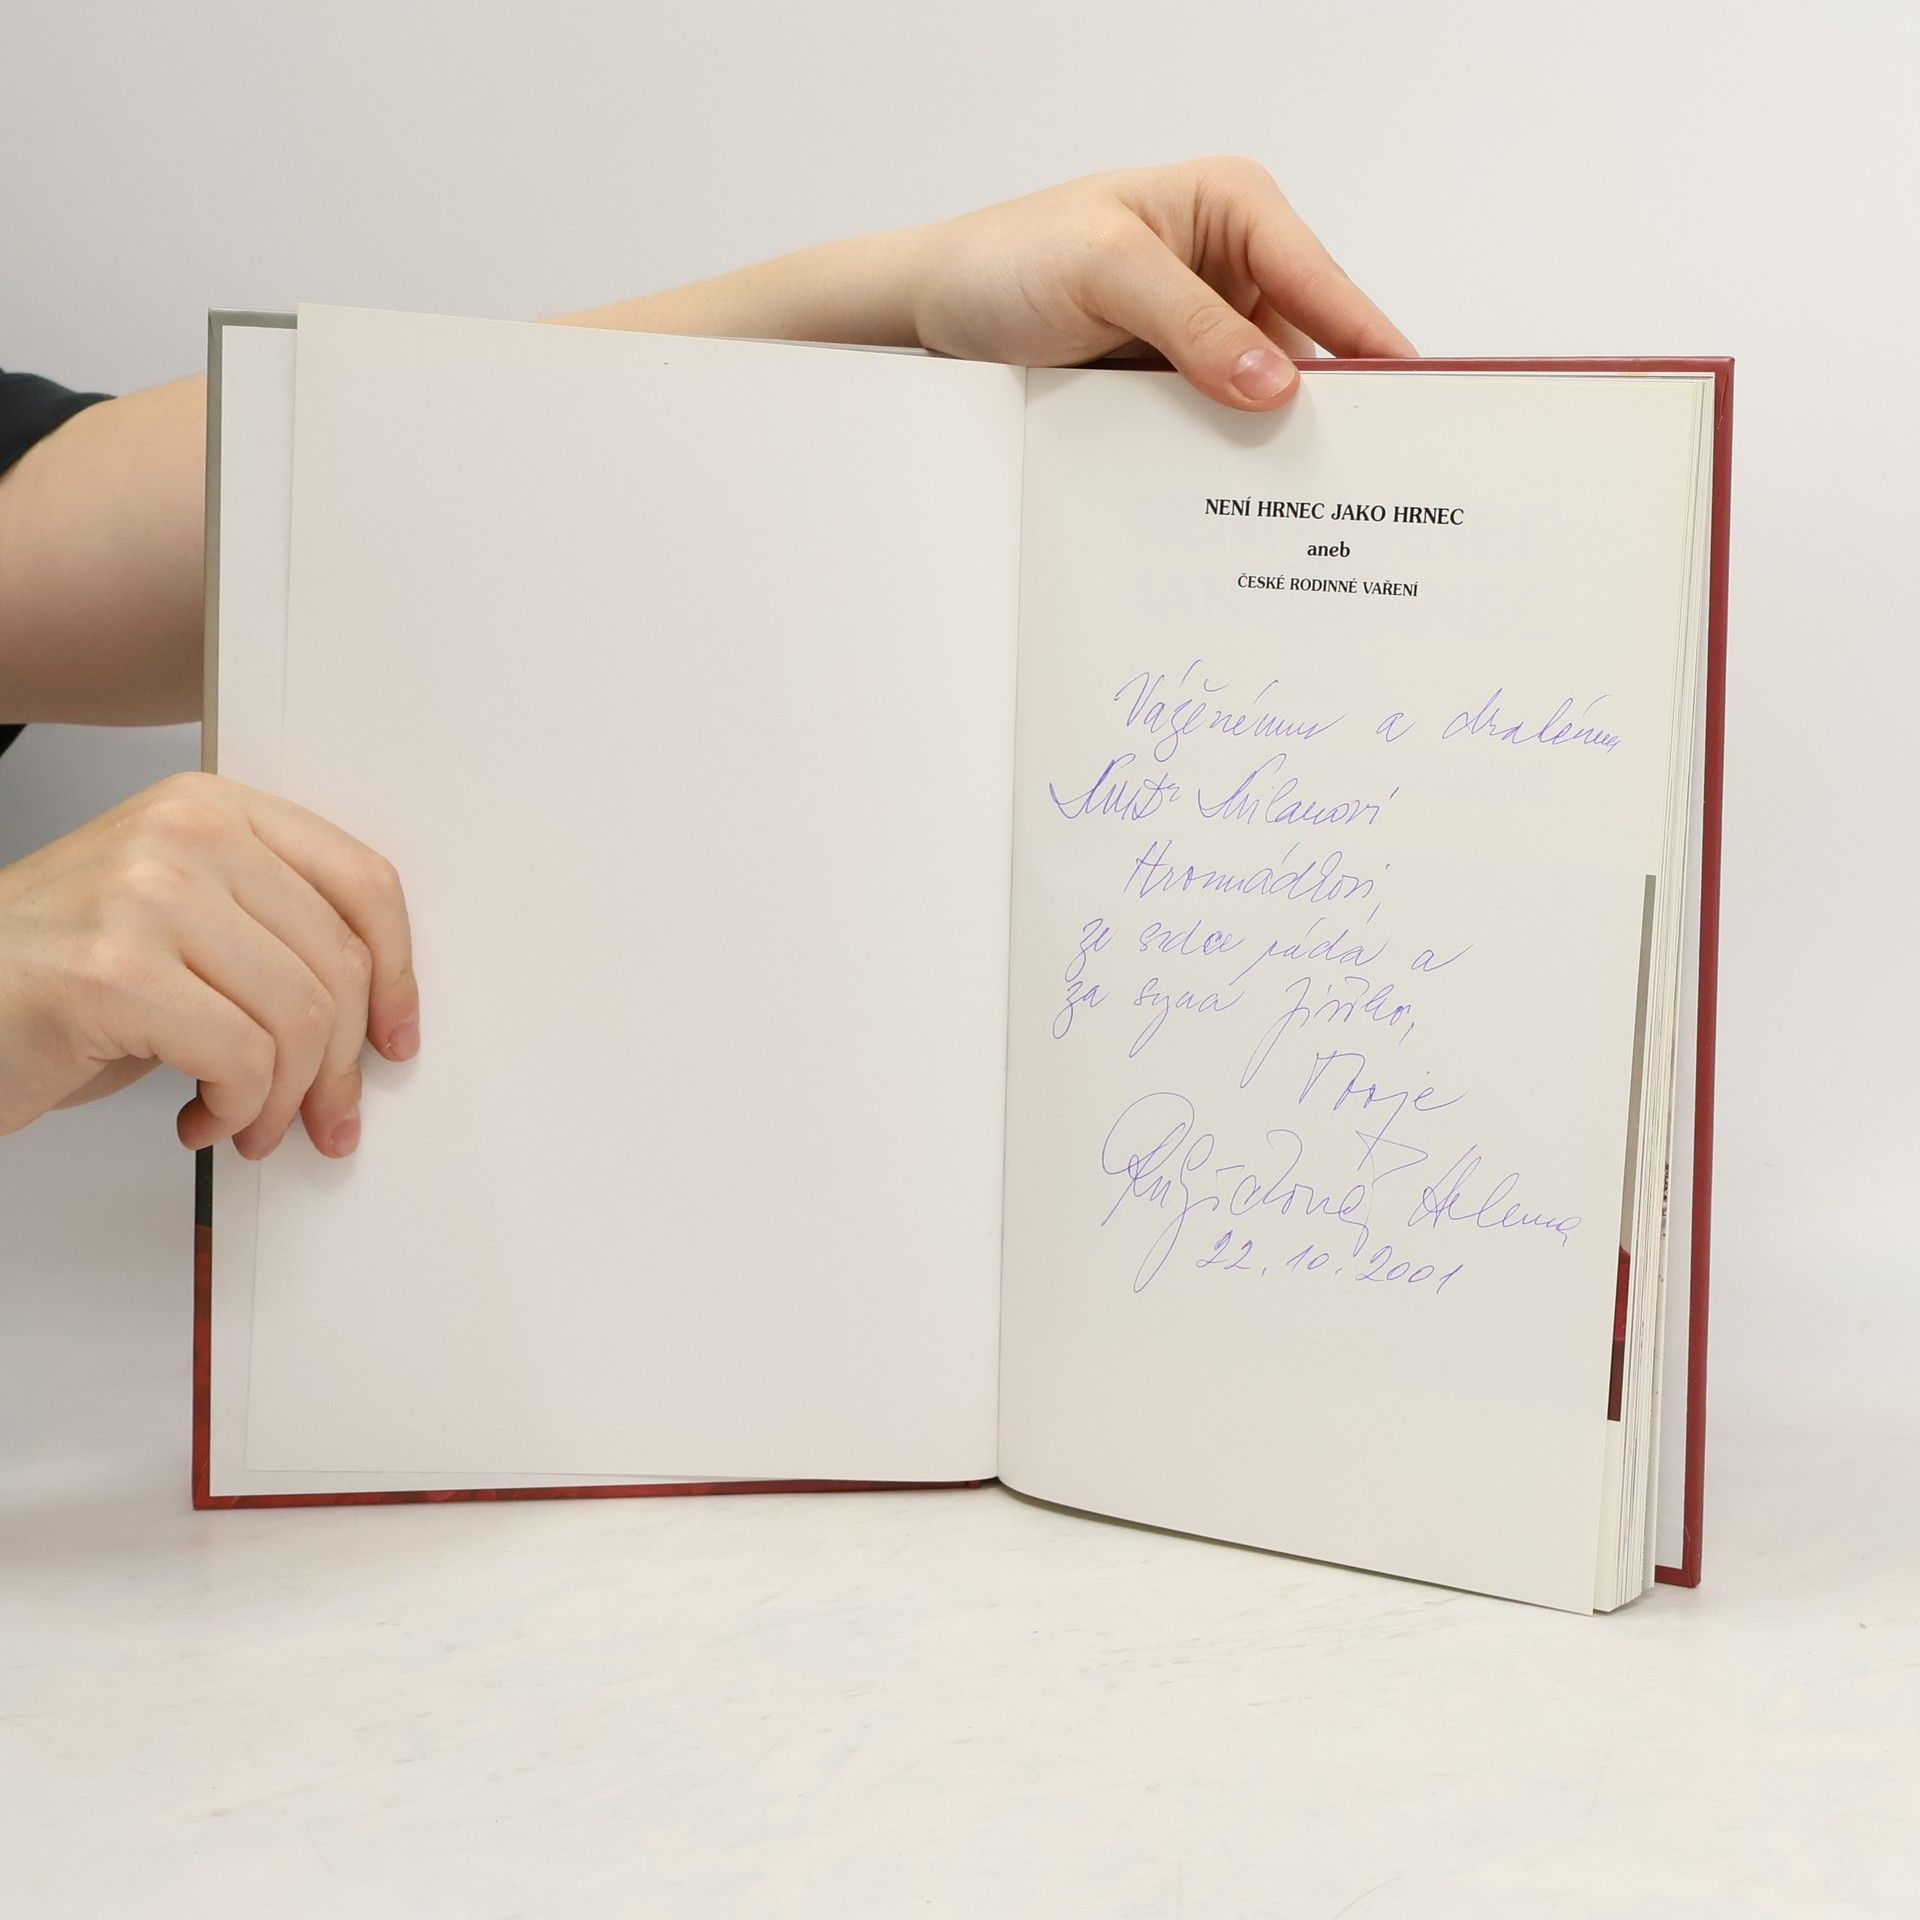 NENÍ HRNEC JAKO HRNEC
aneb
ČESKÉ RODINNÉ VAŘENÍ
Váženému a drahému
MUDr Milanovi
Hromádkovi,
ze srdce ráda a
za syna Jiřího,
Tvoje
Růžičková Helena
22. 10. 2001